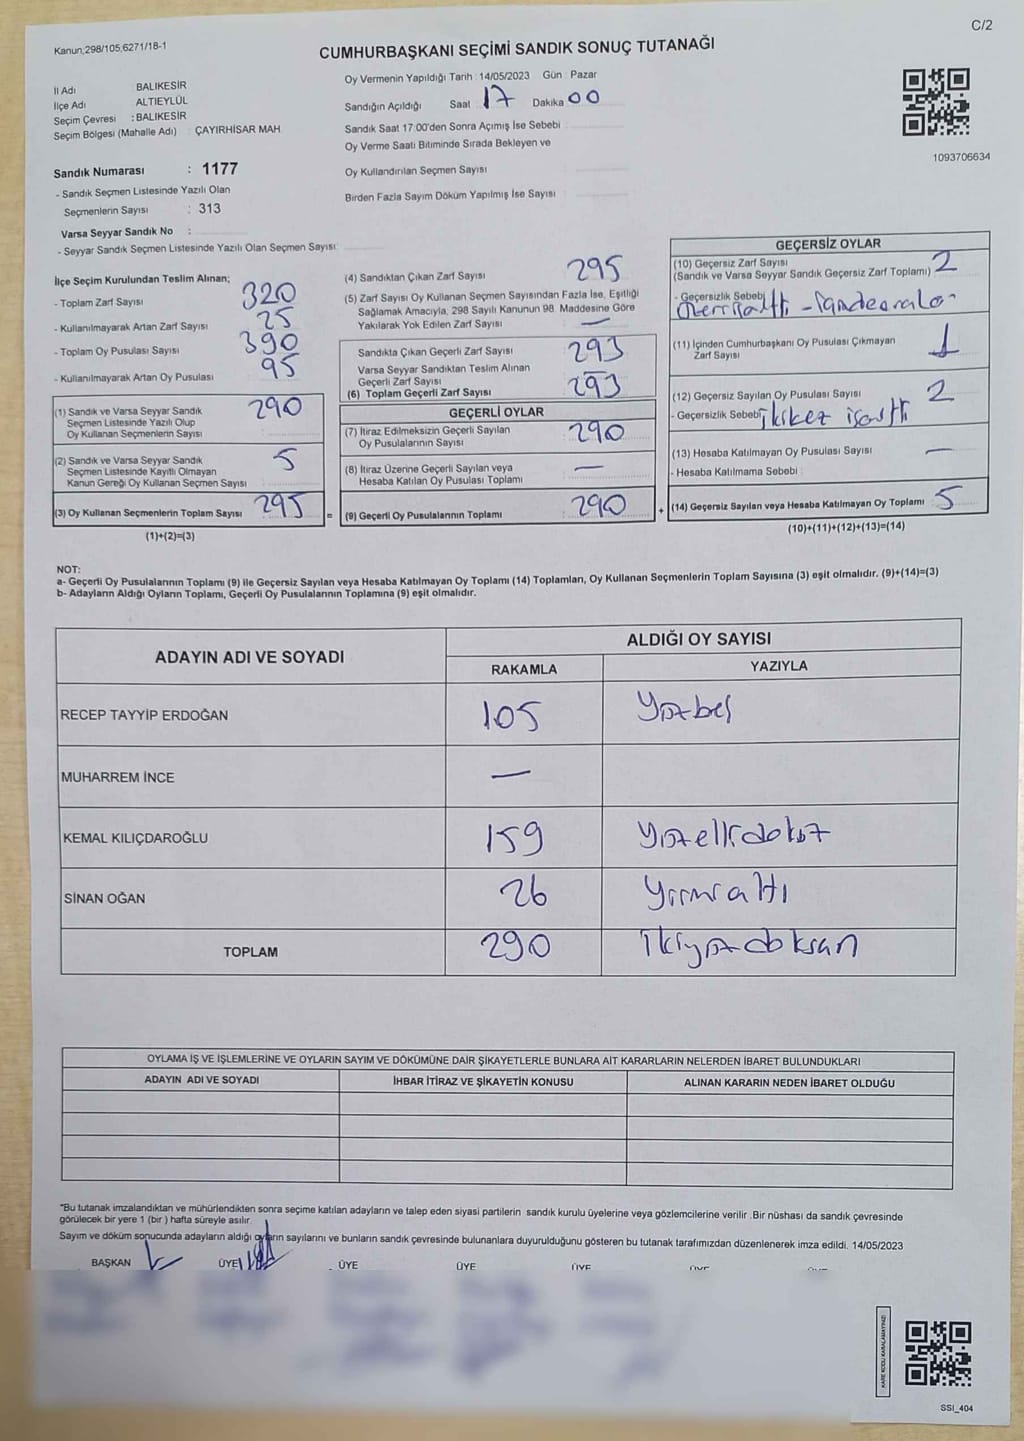 C/2
Kanun;298/105,6271/18-1
CUMHURBAŞKANI SEÇİMİ SANDIK SONUÇ TUTANAĞI
İl Adı : BALIKESİR
İlçe Adı ALTIEYLÜL
Seçim Çevresi : BALIKESİR
Seçim Bölgesi (Mahalle Adı) : ÇAYIRHİSAR MAH
Sandık Numarası : 1177
- Sandık Seçmen Listesinde Yazılı Olan
Seçmenlerin Sayısı : 313
Varsa Seyyar Sandık No :
- Seyyar Sandık Seçmen Listesinde Yazılı Olan Seçmen Sayısı:
Oy Vermenin Yapıldığı Tarih : 14/05/2023 Gün : Pazar
Sandığın Açıldığı Saat 17 Dakika 00
Sandık Saat 17:00'den Sonra Açımış İse Sebebi :
Oy Verme Saati Bitiminde Sırada Bekleyen ve
Oy Kullandırılan Seçmen Sayısı
Birden Fazla Sayım Döküm Yapılmış İse Sayısı
1093706634
İlçe Seçim Kurulundan Teslim Alınan;
- Toplam Zarf Sayısı 320
- Kullanılmayarak Artan Zarf Sayısı 25
- Toplam Oy Pusulası Sayısı 390
- Kullanılmayarak Artan Oy Pusulası 95
(1) Sandık ve Varsa Seyyar Sandık
Seçmen Listesinde Yazılı Olup
Oy Kullanan Seçmenlerin Sayısı 290
(2) Sandık ve Varsa Seyyar Sandık
Seçmen Listesinde Kayıtlı Olmayan
Kanun Gereği Oy Kullanan Seçmen Sayısı 5
(3) Oy Kullanan Seçmenlerin Toplam Sayısı 295
(1)+(2)=(3)
(4) Sandıktan Çıkan Zarf Sayısı 295
(5) Zarf Sayısı Oy Kullanan Seçmen Sayısından Fazla İse, Eşitliği
Sağlamak Amacıyla, 298 Sayılı Kanunun 98. Maddesine Göre
Yakılarak Yok Edilen Zarf Sayısı : —
Sandıkta Çıkan Geçerli Zarf Sayısı 293
Varsa Seyyar Sandıktan Teslim Alınan
Geçerli Zarf Sayısı —
(6) Toplam Geçerli Zarf Sayısı 293
GEÇERLİ OYLAR
(7) İtiraz Edilmeksizin Geçerli Sayılan
Oy Pusulalarının Sayısı 290
(8) İtiraz Üzerine Geçerli Sayılan veya
Hesaba Katılan Oy Pusulası Toplamı —
= (9) Geçerli Oy Pusulalarının Toplamı : 290
GEÇERSİZ OYLAR
(10) Geçersiz Zarf Sayısı
(Sandık ve Varsa Seyyar Sandık Geçersiz Zarf Toplamı) 2
- Geçersizlik Sebebi
(11) İçinden Cumhurbaşkanı Oy Pusulası Çıkmayan
Zarf Sayısı 1
(12) Geçersiz Sayılan Oy Pusulası Sayısı 2
- Geçersizlik Sebebi İkikez
(13) Hesaba Katılmayan Oy Pusulası Sayısı —
- Hesaba Katılmama Sebebi :
+ (14) Geçersiz Sayılan veya Hesaba Katılmayan Oy Toplamı 5
(10)+(11)+(12)+(13)=(14)
NOT:
a- Geçerli Oy Pusulalarının Toplamı (9) ile Geçersiz Sayılan veya Hesaba Katılmayan Oy Toplamı (14) Toplamları, Oy Kullanan Seçmenlerin Toplam Sayısına (3) eşit olmalıdır. (9)+(14)=(3)
b- Adayların Aldığı Oyların Toplamı, Geçerli Oy Pusulalarının Toplamına (9) eşit olmalıdır.
ADAYIN ADI VE SOYADI ALDIĞI OY SAYISI
RAKAMLA YAZIYLA
RECEP TAYYİP ERDOĞAN 105 Yüzbeş
MUHARREM İNCE —
KEMAL KILIÇDAROĞLU 159 Yüzellidokuz
SİNAN OĞAN 26 Yirmialtı
TOPLAM 290 ikiyüzdoksan
OYLAMA İŞ VE İŞLEMLERİNE VE OYLARIN SAYIM VE DÖKÜMÜNE DAİR ŞİKAYETLERLE BUNLARA AİT KARARLARIN NELERDEN İBARET BULUNDUKLARI
ADAYIN ADI VE SOYADI İHBAR İTİRAZ VE ŞİKAYETİN KONUSU ALINAN KARARIN NEDEN İBARET OLDUĞU
*Bu tutanak imzalandıktan ve mühürlendikten sonra seçime katılan adayların ve talep eden siyasi partilerin sandık kurulu üyelerine veya gözlemcilerine verilir .Bir nüshası da sandık çevresinde
görülecek bir yere 1 (bir ) hafta süreyle asılır.
Sayım ve döküm sonucunda adayların aldığı oyların sayılarını ve bunların sandık çevresinde bulunanlara duyurulduğunu gösteren bu tutanak tarafımızdan düzenlenerek imza edildi. 14/05/2023
BAŞKAN ÜYE ÜYE ÜYE ÜYE ÜYE ÜYE
KARE KODU KARALAMAYINIZ!
SSI_404